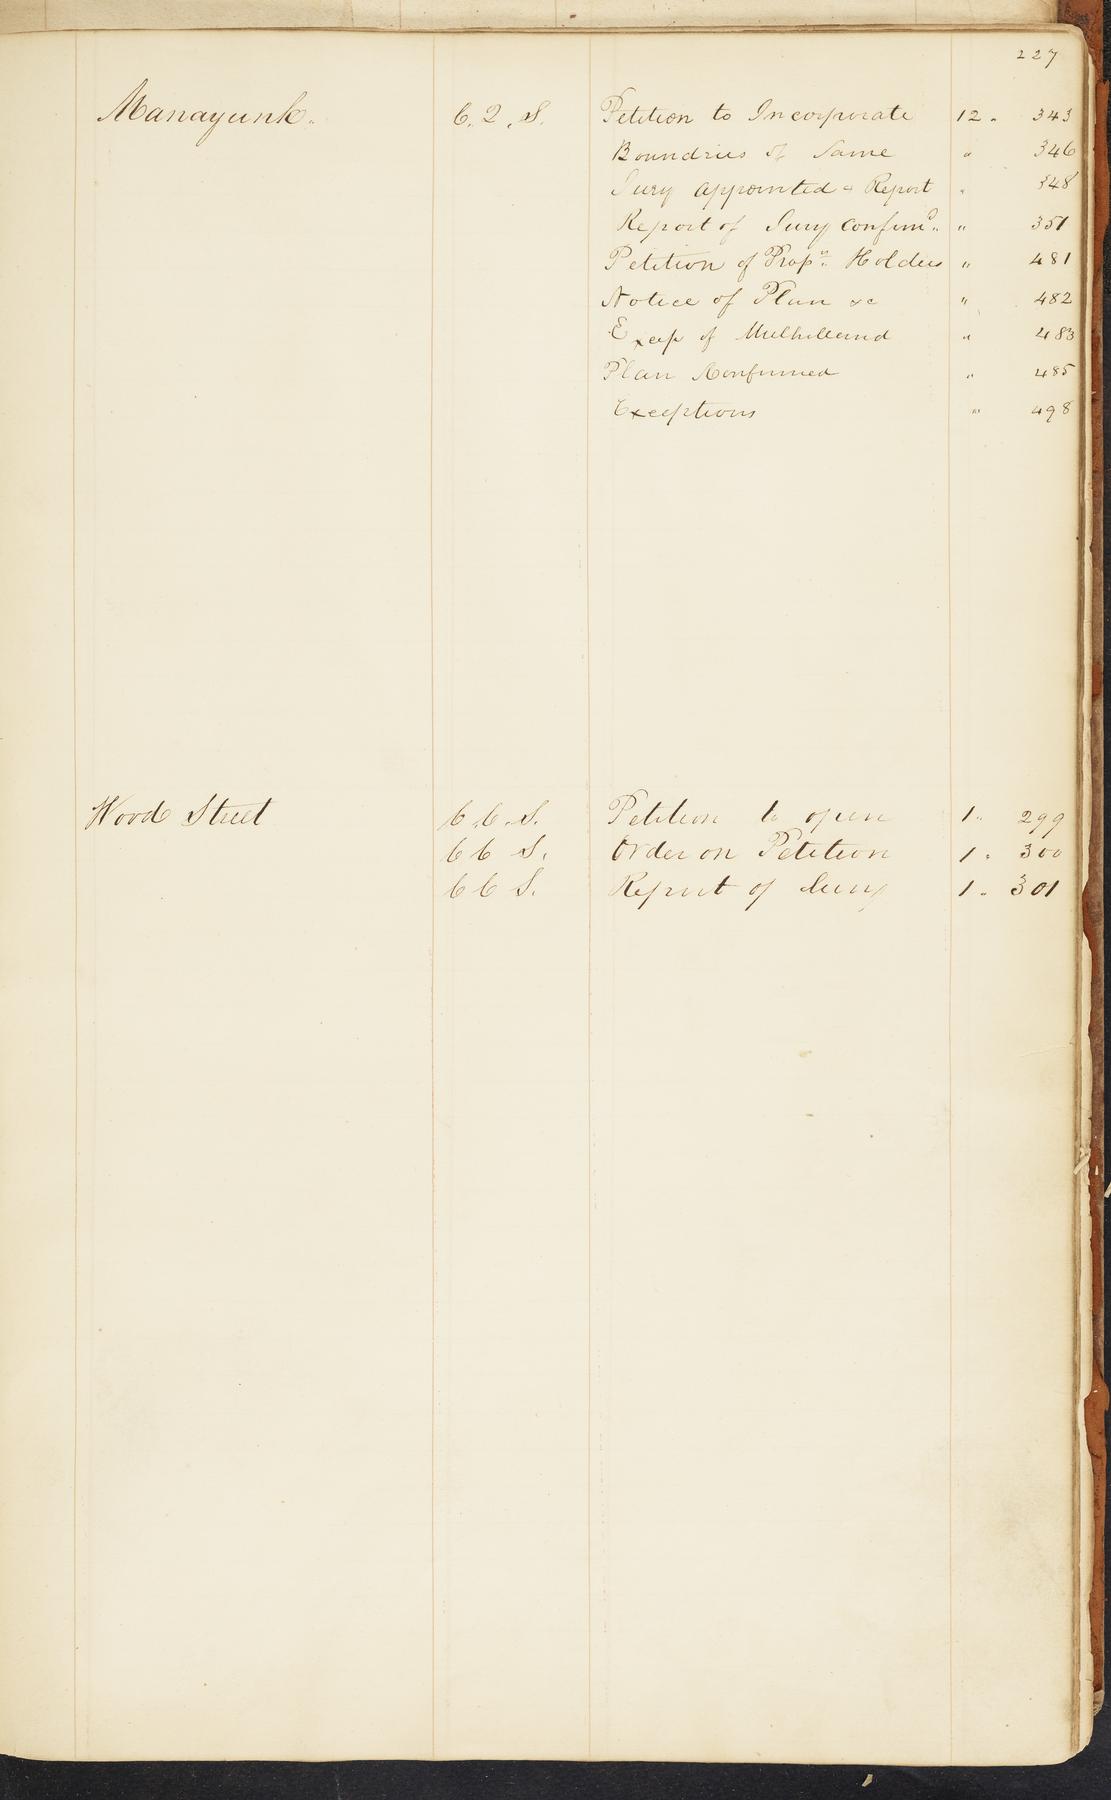 227
Manayunk. C. Q. S. Petition to Incorporate 12 " 343
Boundries of Same " 346
Jury appointed & Report " 348
Report of Jury Confirmd. " 351
Petition of Propy. Holders " 481
Notice of Plan &c " 482
Excep of Mulholland " 483
Plan Confirmed " 485
Exceptions " 498
Wood Street C C. S. Petition to open 1 " 299
C C S. Order on Petition 1 " 300
C C S. Report of Jury 1 " 301